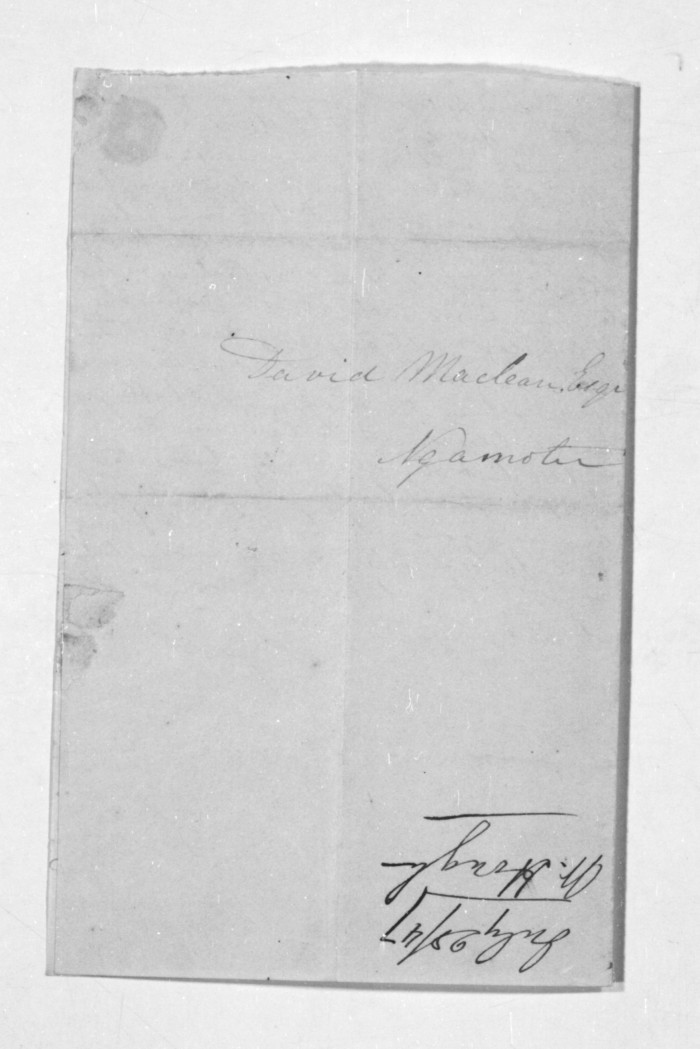 David Maclean Esqr
Ngamotu
July 28/47
W. Hough